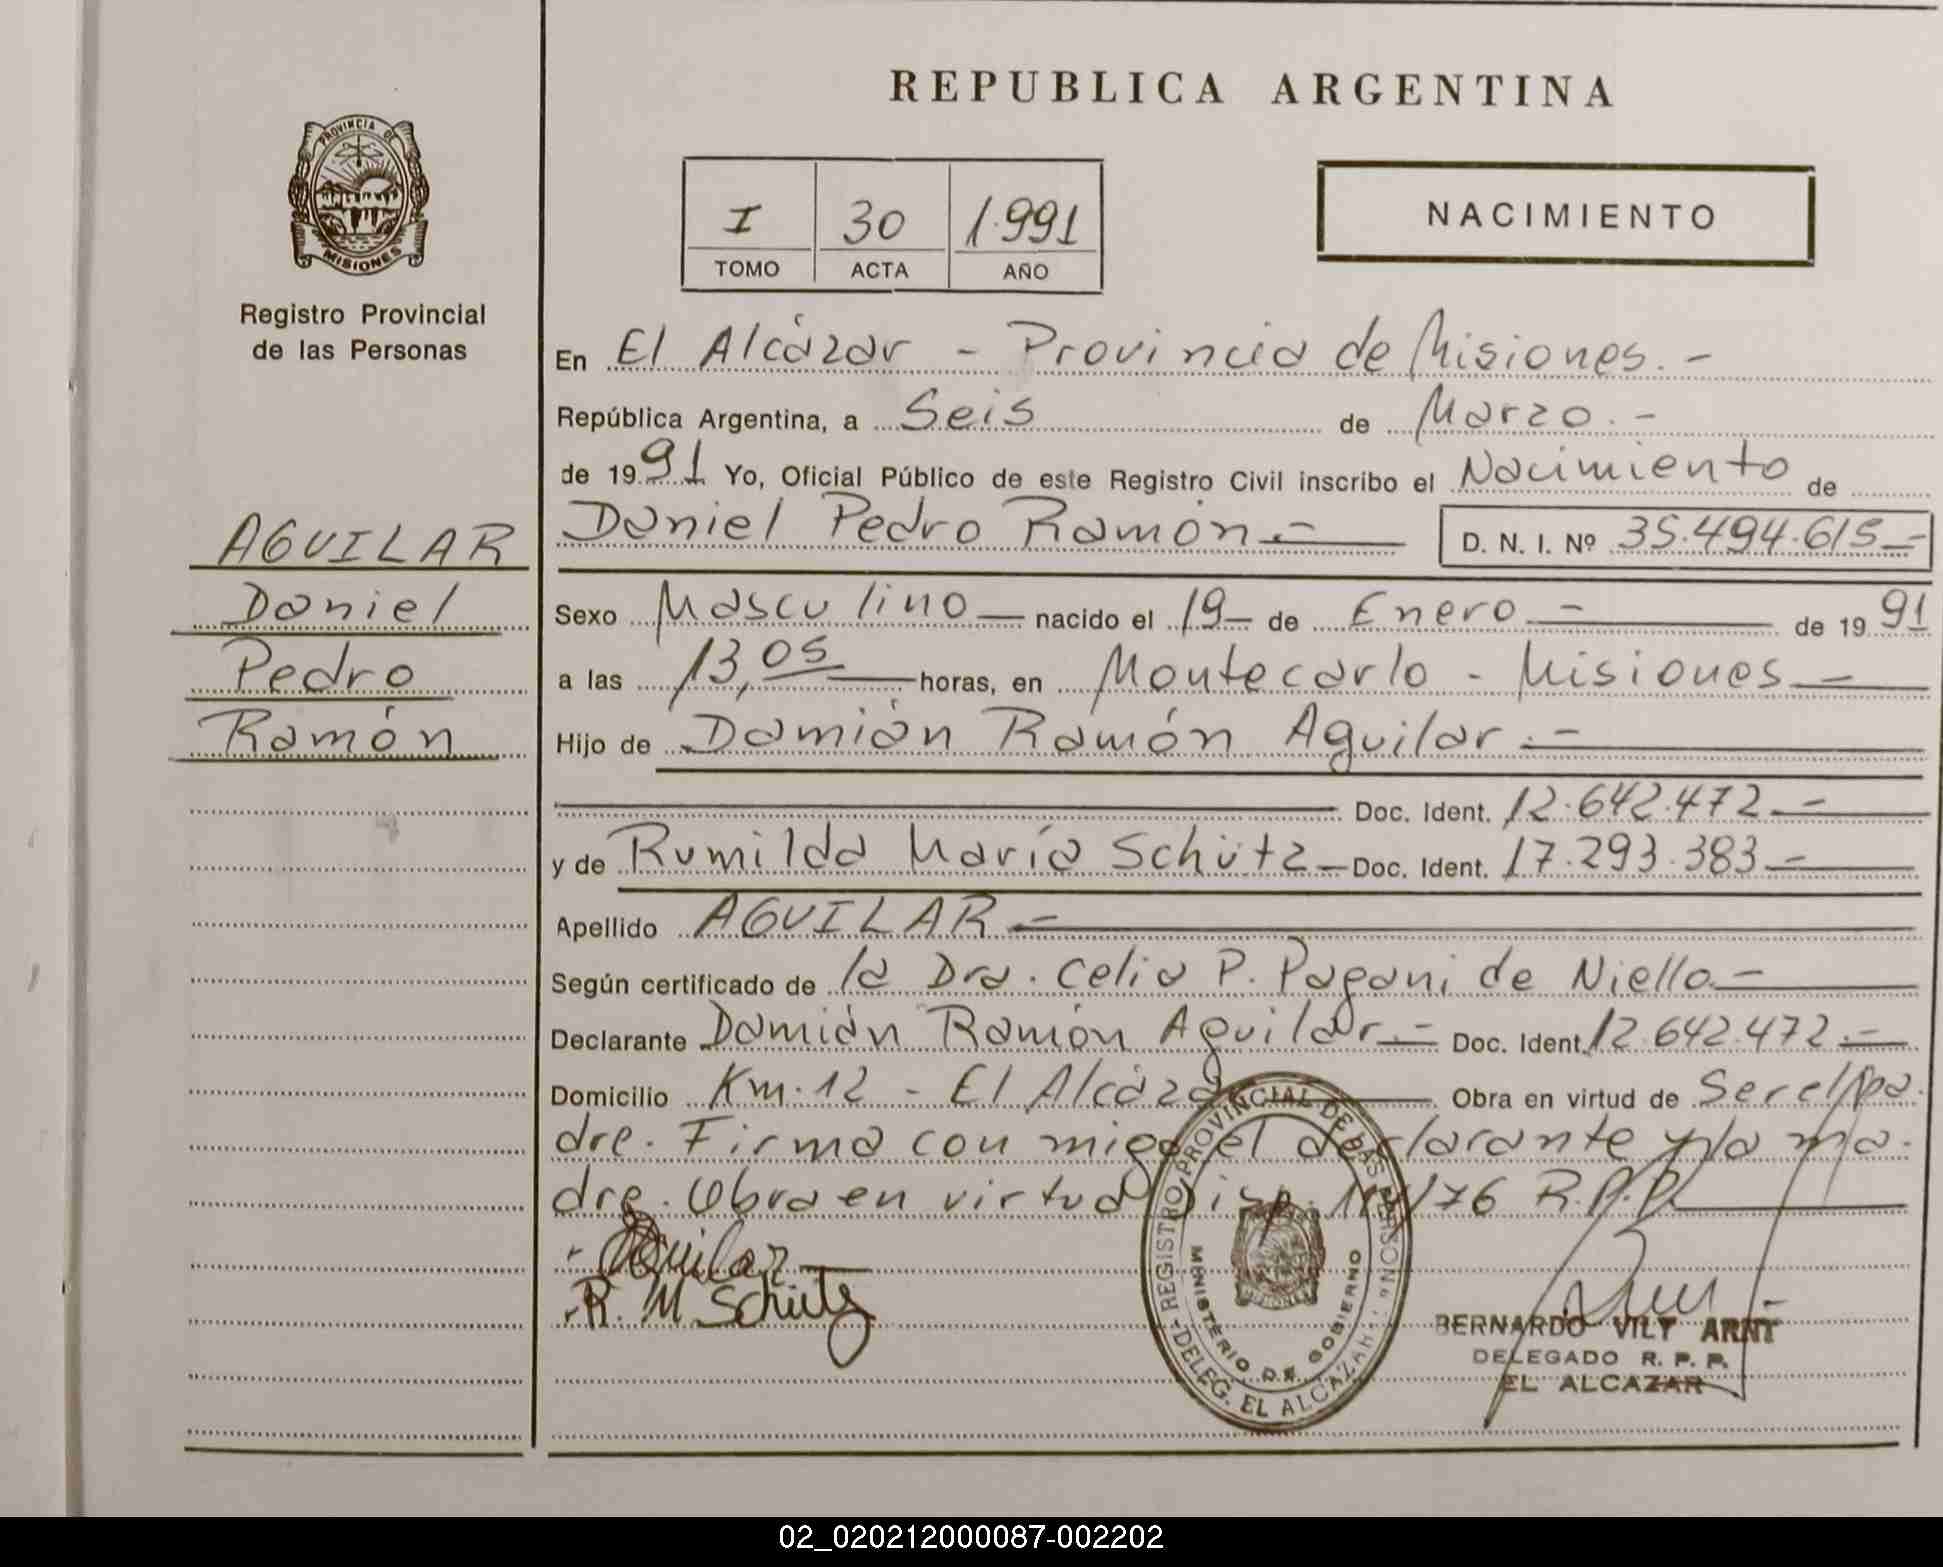 REPUBLICA ARGENTINA
PROVINCIA DE
MISIONES
Registro Provincial
de las Personas
I 30 1.991
TOMO ACTA AÑO
NACIMIENTO
En El Alcázar - Provincia de Misiones.-
República Argentina, a Seis de Marzo.-
de 1991 Yo, Oficial Público de este Registro Civil inscribo el Nacimiento de
Daniel Pedro Ramón.- D. N. I. Nº 35.494.615.-
AGUILAR
Daniel
Pedro
Ramón
Sexo Masculino nacido el 19 de Enero - de 1991
a las 13,05 horas, en Montecarlo - Misiones -
Hijo de Damián Ramón Aguilar.-
Doc. Ident. 12.642.472.-
y de Rumilda María Schütz - Doc. Ident. 17.293.383.-
Apellido AGUILAR -
Según certificado de la Dra. Celia P. Pagani de Niello -
Declarante Damián Ramón Aguilar.- Doc. Ident. 12.642.472.-
Domicilio Km.12 - El Alcázar Obra en virtud de Ser el pa-
dre. Firma con migo el declarante y la ma-
dre. Obra en virtud Disp. /76 R.P.P.
Aguilar
R. M Schütz
REGISTRO PROVINCIAL DE LAS PERSONAS
MINISTERIO DE GOBIERNO
DELEG. EL ALCAZAR
MISIONES
BERNARDO VILY ARNT
DELEGADO R. P. P.
EL ALCAZAR
02_020212000087-002202